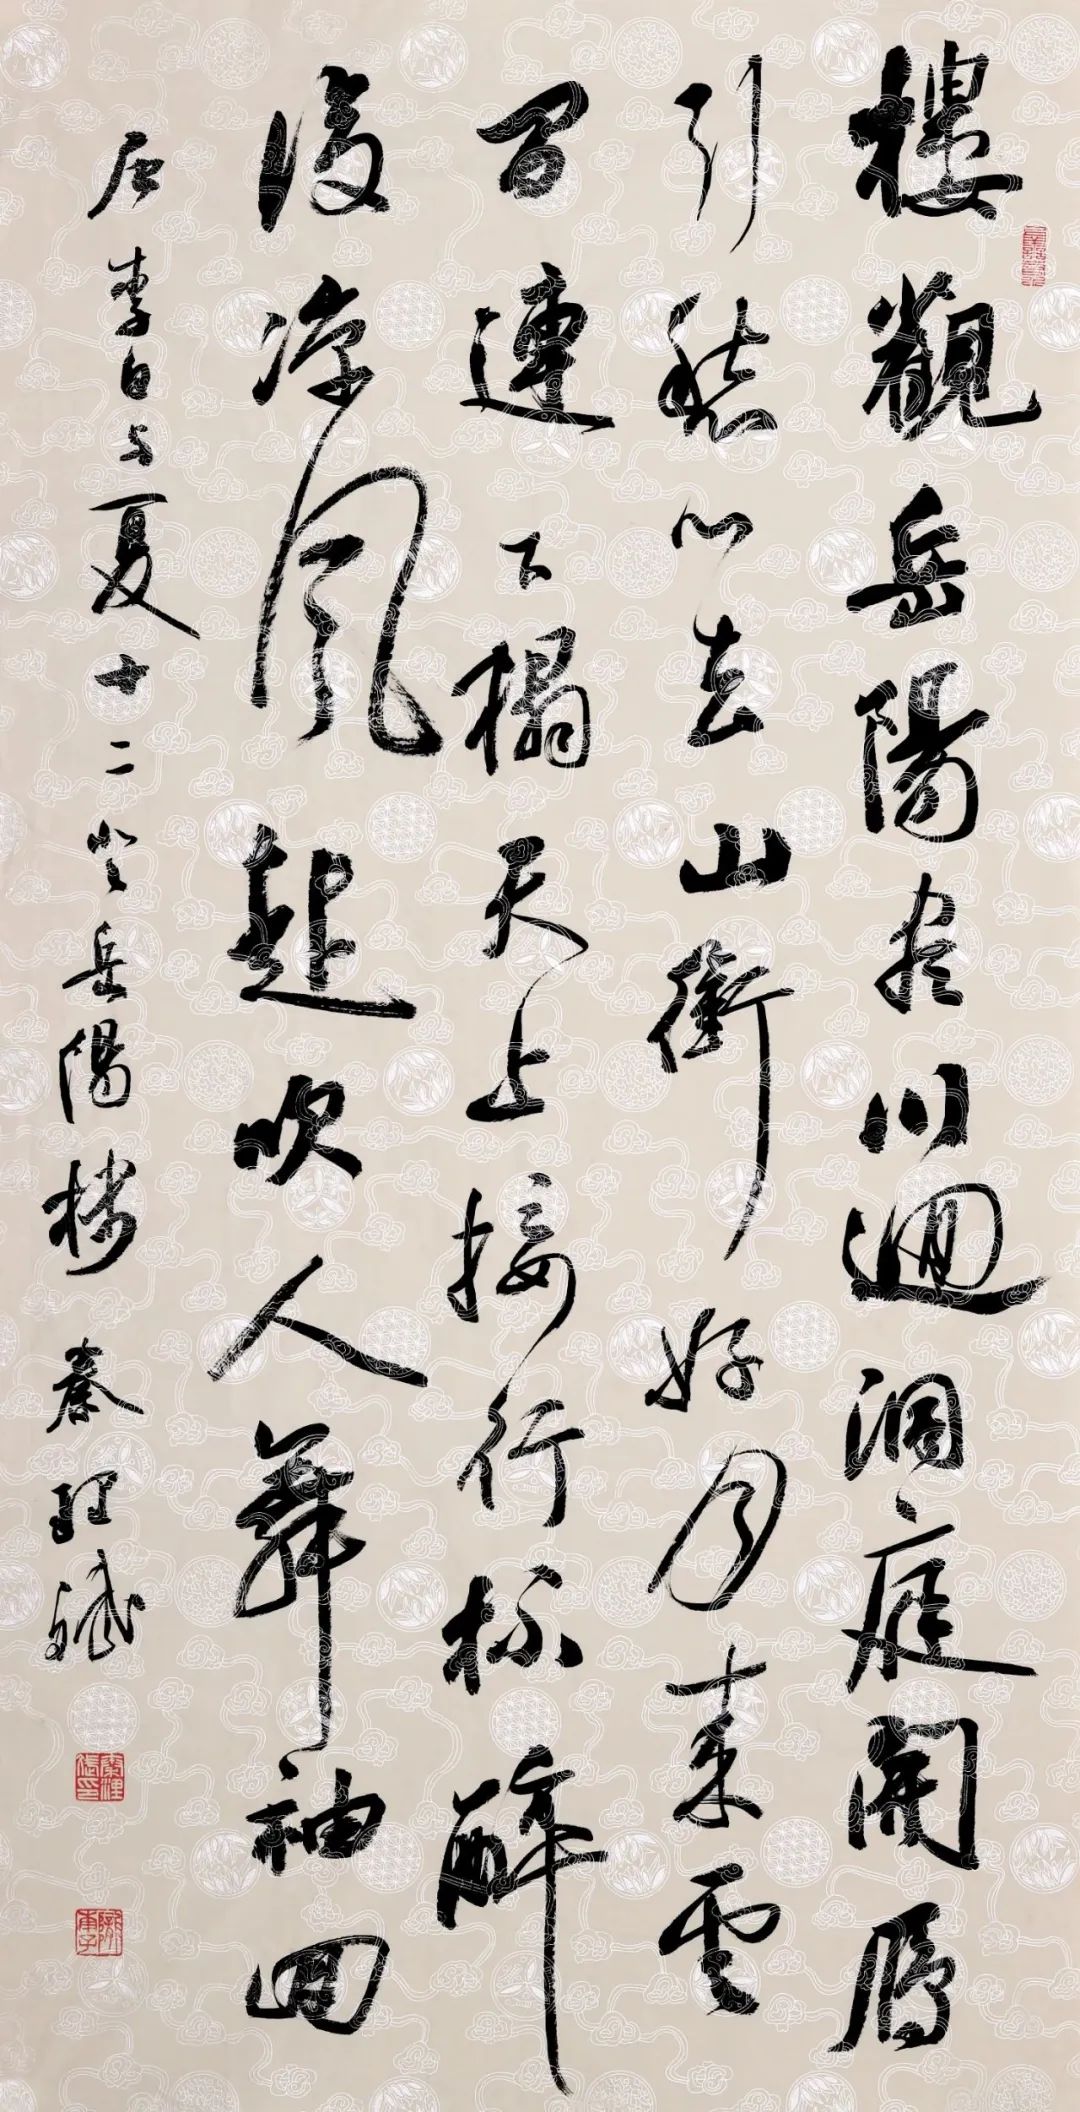 樓觀岳陽盡川迥洞庭開雁
引愁心去山銜好月來雲
間連下榻天上接行杯醉
後涼風起吹人舞袖回
唐李白与夏十二登岳陽楼 秦理斌